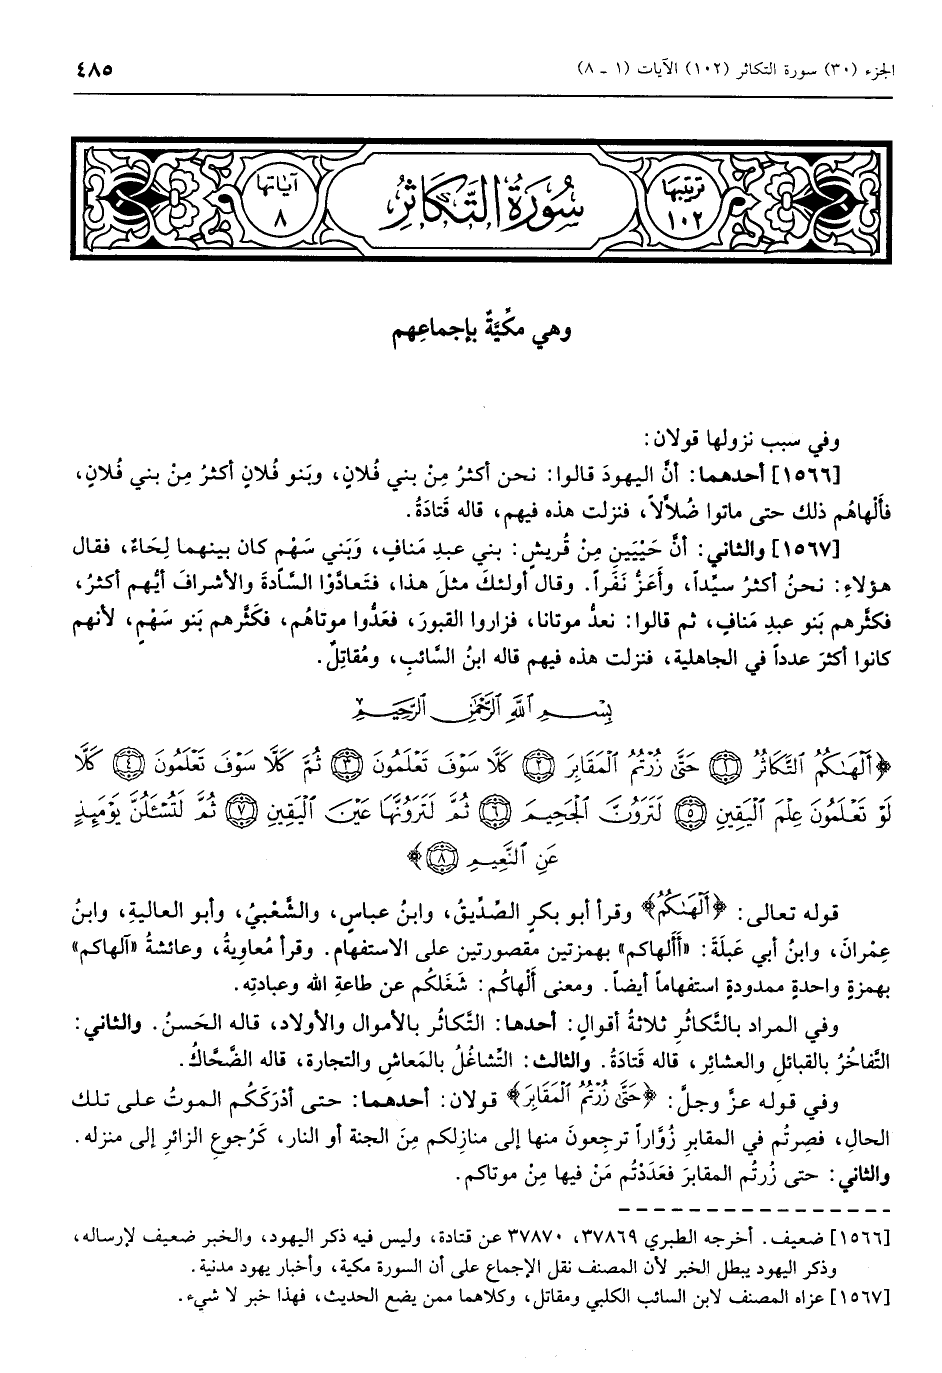 الجزء (٣٠) سورة التكاثر (١٠٢) الآيات (١ - ٨)
٤٨٥
ترتيبها ١٠٢
سُورَةُ التَّكَاثُرِ
آياتها ٨
وهي مكّيَّةٌ بإجماعِهم
وفي سبب نزولها قولان:
[١٥٦٦] أحدهما: أنَّ اليهودَ قالوا: نحن أكثرُ مِنْ بني فُلان، وبَنو فُلانٍ أكثرُ مِنْ بني فُلانٍ،
فأَلْهاهُم ذلك حتى ماتوا ضُلاَّلاً، فنزلت هذه فيهم، قاله قَتادَةُ.
[١٥٦٧] والثاني: أنَّ حَيَّيَينِ مِنْ قُريش: بني عبدِ مَنافٍ، وَبَني سَهْمٍ كان بينهما لِحَاءٌ، فقال
هؤلاءِ: نحنُ أكثرُ سيّداً، وأَعَزُّ نَفَراً. وقال أولئكَ مثلَ هذا، فتَعادَّوْا السَّادةَ والأشرافَ أيُّهم أكثرُ،
فكثَّرهم بَنو عبدِ مَنافٍ، ثم قالوا: نعدُّ موتانا، فزاروا القبورَ، فعَدُّوا موتاهُم، فكَثَّرهم بَنو سَهْمٍ، لأنهم
كانوا أكثرَ عدداً في الجاهلية، فنزلت هذه فيهم قاله ابنُ السَّائبِ، ومُقاتِلٌ.
بِسْمِ ٱللَّهِ ٱلرَّحْمَٰنِ ٱلرَّحِيمِ
﴿أَلْهَىٰكُمُ ٱلتَّكَاثُرُ ١ حَتَّىٰ زُرْتُمُ ٱلْمَقَابِرَ ٢ كَلَّا سَوْفَ تَعْلَمُونَ ٣ ثُمَّ كَلَّا سَوْفَ تَعْلَمُونَ ٤ كَلَّا
لَوْ تَعْلَمُونَ عِلْمَ ٱلْيَقِينِ ٥ لَتَرَوُنَّ ٱلْجَحِيمَ ٦ ثُمَّ لَتَرَوُنَّهَا عَيْنَ ٱلْيَقِينِ ٧ ثُمَّ لَتُسْـَٔلُنَّ يَوْمَئِذٍ
عَنِ ٱلنَّعِيمِ ٨﴾
قوله تعالى: ﴿أَلْهَىٰكُمُ﴾ وقرأ أبو بكرٍ الصِّدِّيقُ، وابنُ عباسٍ، والشَّعْبيُّ، وأبو العاليةِ، وابنُ
عِمْرانَ، وابنُ أبي عَبلَةَ: «أَأَلهاكم» بهمزتين مقصورتين على الاستفهام. وقرأ مُعاويةُ، وعائشةُ «آلهاكم»
بهمزةٍ واحدةٍ ممدودةٍ استفهاماً أيضاً. ومعنى أَلْهاكُم: شَغَلكُم عن طاعةِ الله وعبادتِه.
وفي المراد بالتَّكاثُرِ ثلاثةُ أقوالٍ: أحدها: التَّكاثُر بالأموال والأولاد، قاله الحَسنُ. والثاني:
التَّفاخُرُ بالقبائلِ والعشائرِ، قاله قَتادَةُ. والثالث: التَّشاغُلُ بالمَعاشِ والتجارة، قاله الضَّحَّاكُ.
وفي قوله عزَّ وجلَّ: ﴿حَتَّىٰ زُرْتُمُ ٱلْمَقَابِرَ﴾ قولان: أحدهما: حتى أدْرَككُم الموتُ على تلك
الحالِ، فصِرتُم في المقابرِ زُوَّاراً ترجِعونَ منها إلى منازِلكم مِنَ الجنة أو النار، كَرُجوعِ الزائرِ إلى منزله.
والثاني: حتى زُرتُم المقابرَ فعَدَدْتُم مَنْ فيها مِنْ موتاكم.
[١٥٦٦] ضعيف. أخرجه الطبري ٣٧٨٦٩، ٣٧٨٧٠ عن قتادة، وليس فيه ذكر اليهود، والخبر ضعيف لإرساله،
وذكر اليهود يبطل الخبر لأن المصنف نقل الإجماع على أن السورة مكية، وأخبار يهود مدنية.
[١٥٦٧] عزاه المصنف لابن السائب الكلبي ومقاتل، وكلاهما ممن يضع الحديث، فهذا خبر لا شيء.